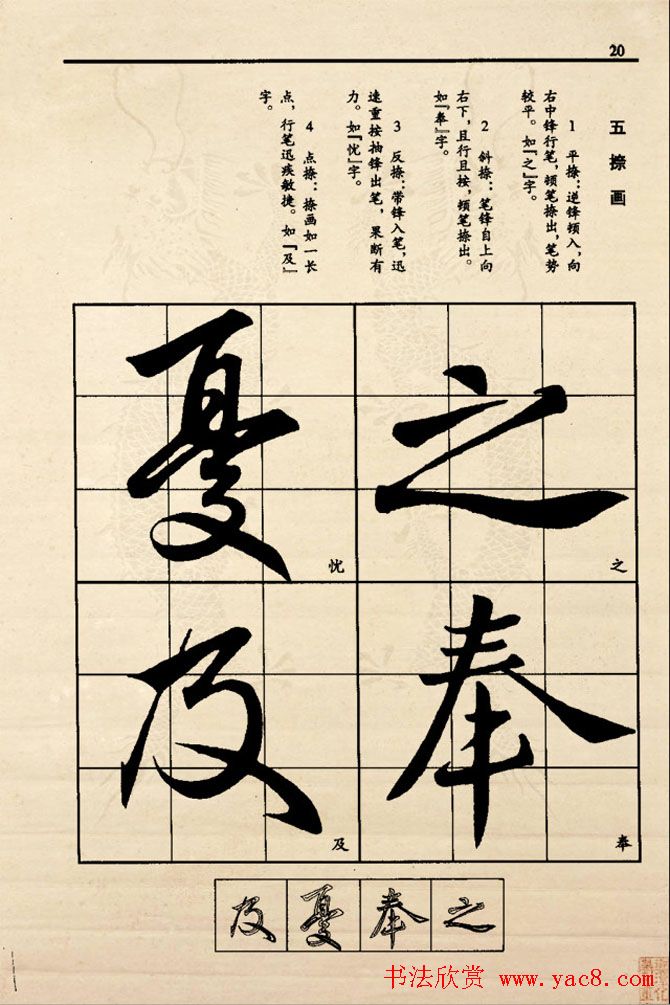 20
五 捺 画
1 平捺：逆锋顿入，向
右中锋行笔，顿笔捺出，笔势
较平。如『之』字。
2 斜捺：笔锋自上向
右下，且行且按，顿笔捺出。
如『奉』字。
3 反捺：带锋入笔，迅
速重按抽锋出笔，果断有
力。如『忧』字。
4 点捺：捺画如一长
点，行笔迅疾敏捷。如『及』
字。
之
之
奉
奉
憂
忧
及
及
及 憂 奉 之
书法欣赏 www.yac8.com